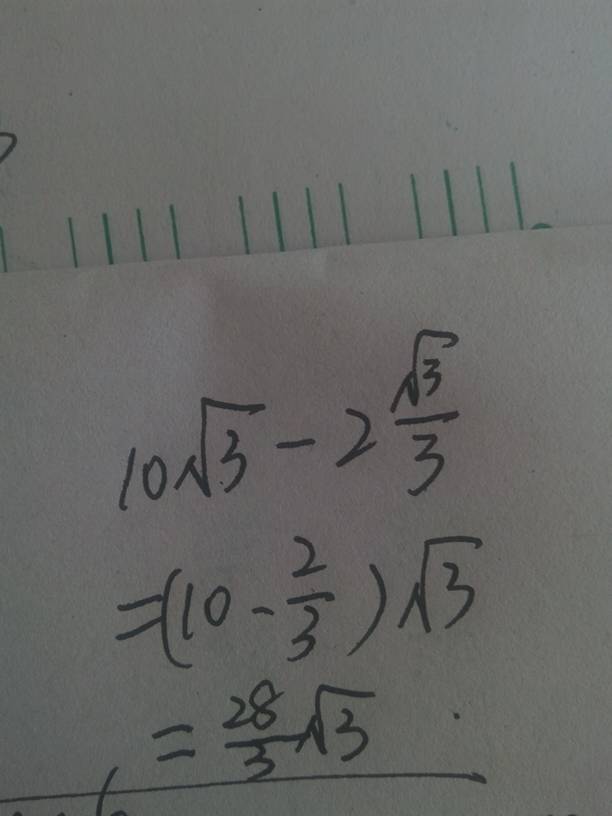 10√3 - 2 √3/3
=(10 - 2/3)√3
= 28/3 √3